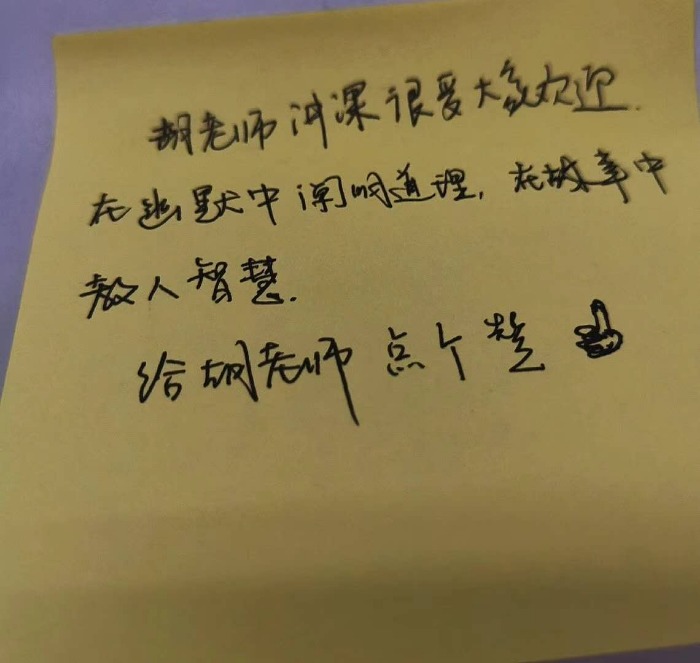 胡老师讲课很受大家欢迎.
在幽默中阐明道理,在故事中
教人智慧.
给胡老师点个赞